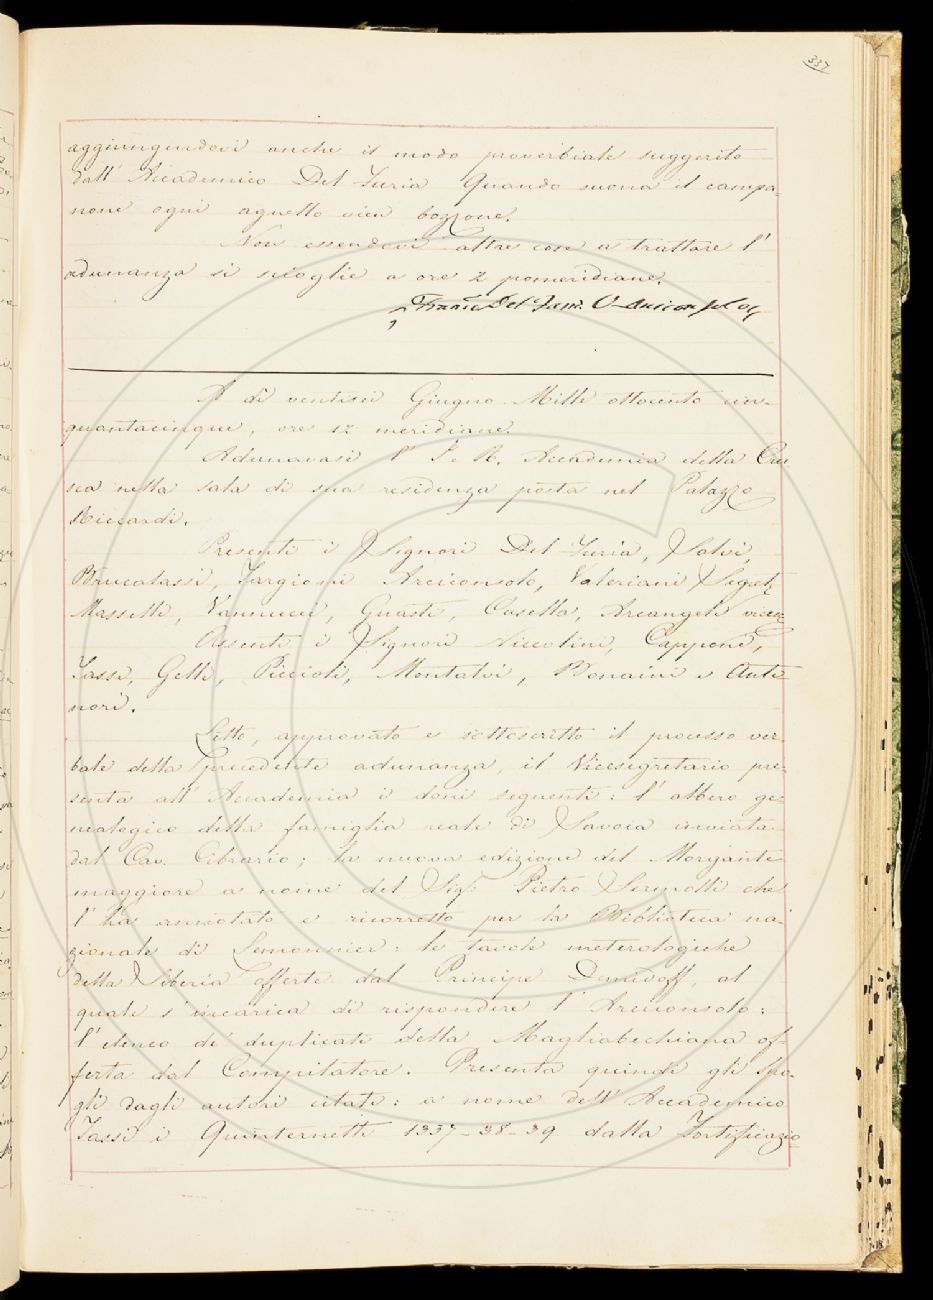 337
aggiungendovi anche il modo proverbiale suggerito
dall' Accademico Del Furia Quando suona il campa=
none ogni agnello vien bozzone.
Non essendovi altre cose a trattare l'
adunanza si scioglie a ore 2 pomeridiane.
A dì ventisei Giugno Mille ottocento cin-
quantacinque, ore 12 meridiane.
Adunavasi l' I. e R. Accademia della Cru
sca nella sala di sua residenza posta nel Palazzo
Riccardi.
Presenti i Signori Del Furia, Salvi,
Brucalassi, Targioni Arciconsolo, Valeriani Segret.
Masselli, Vannucci, Guasti, Casella, Arcangeli vice
Assenti i Signori Niccolini, Capponi,
Tassi, Gelli, Piccioli, Montalvi, Bonaini e Anti
nori.
Letto, approvato e sottoscritto il processo ver
bale della precedente adunanza, il Vicesegretario pre=
senta all' Accademia i doni seguenti: l' albero ge=
nealogico della famiglia reale di Savoia inviata
dal Cav. Cibrario; la nuova edizione del Morgante
maggiore a nome del Sig.r Pietro Sermolli che
l' ha annotato e ricorretto per la Biblioteca na=
zionale di Lemonnier: le tavole meterologiche
della Siberia offerte dal Principe Demidoff, al
quale s' incarica di rispondere l' Arciconsolo:
l' elenco de' duplicati della Magliabechiana of-
ferta dal Compilatore. Presenta quindi gli spo-
gli dagli autori citati: a nome dell' Accademico
Tassi i Quinternetti 1337-38-39 dalla Fortificazio